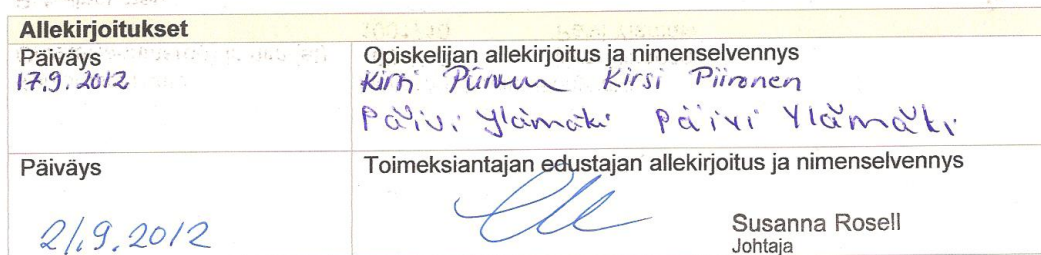 Allekirjoitukset
Päiväys
17.9.2012
Opiskelijan allekirjoitus ja nimenselvennys
Kirsi Piironen Kirsi Piironen
Päivi Ylämäki Päivi Ylämäki
Päiväys
21.9.2012
Toimeksiantajan edustajan allekirjoitus ja nimenselvennys
Susanna Rosell
Johtaja